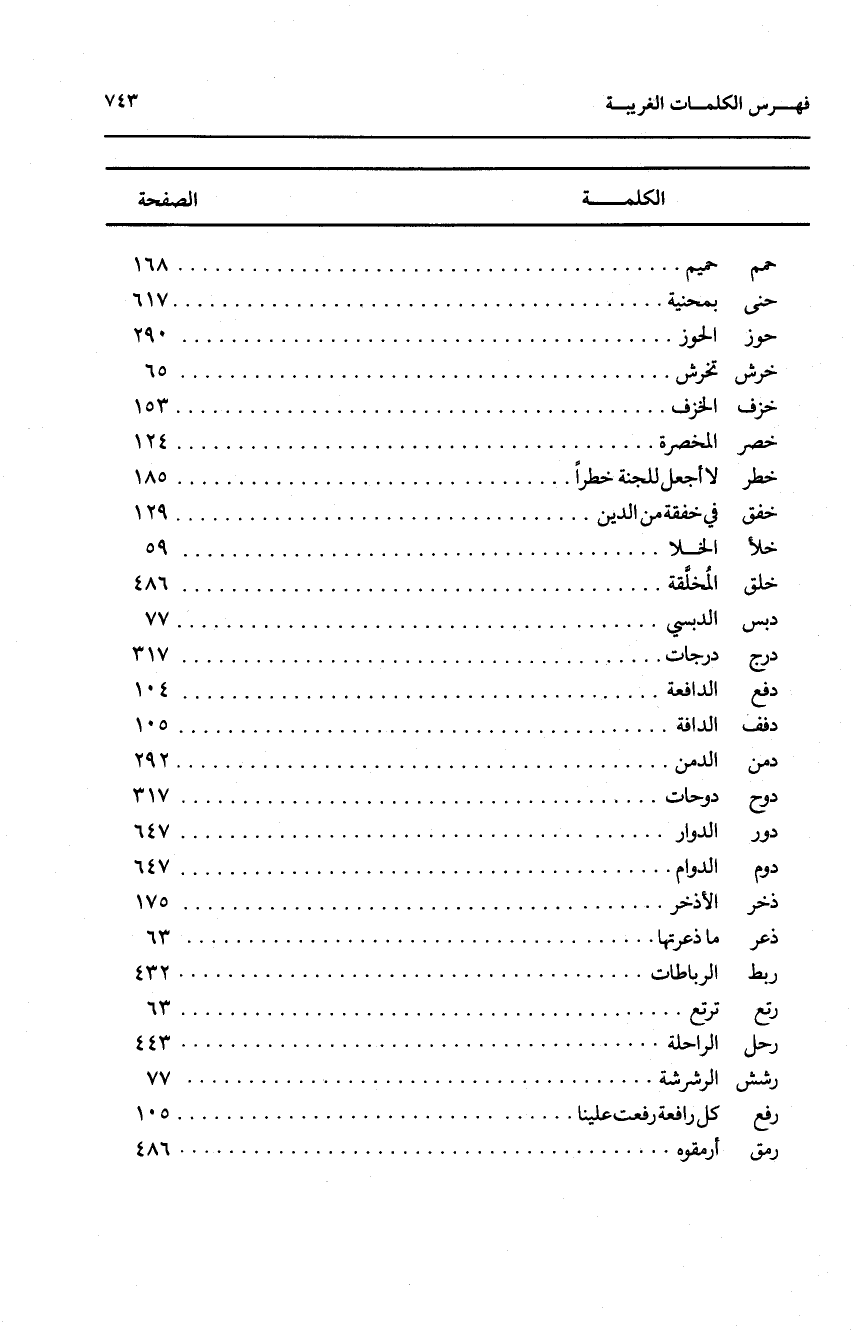 فهـــرس الكلمـــات الغريبـــة ٧٤٣
الكلمـــــة الصفحة
حمم حميم ........................................ ١٦٨
حنى بمحنية ........................................ ٦١٧
حوز الحوز ........................................ ٢٩٠
خرش تخرش ........................................ ٦٥
خزف الخزف ........................................ ١٥٣
خصر المخصرة ........................................ ١٢٤
خطر لا أجعل للجنة خطراً ................................ ١٨٥
خفق في خفقة من الدين .................................. ١٢٩
خلأ الخـــلا ........................................ ٥٩
خلق المُخلَّقة ........................................ ٤٨٦
دبس الدبسي ........................................ ٧٧
درج درجات ........................................ ٣١٧
دفع الدافعة ........................................ ١٠٤
دفف الدافة ........................................ ١٠٥
دمن الدمن ........................................ ٢٩٢
دوح دوحات ........................................ ٣١٧
دور الدوار ........................................ ٦٤٧
دوم الدوام ........................................ ٦٤٧
ذخر الأذخر ........................................ ١٧٥
ذعر ما ذعرتها ...................................... ٦٣
ربط الرباطات ...................................... ٤٣٢
رتع ترتع ........................................ ٦٣
رحل الراحلة ........................................ ٤٤٣
رشش الرشرشة ...................................... ٧٧
رفع كل رافعة رفعت علينا ................................ ١٠٥
رمق أرمقوه ........................................ ٤٨٦